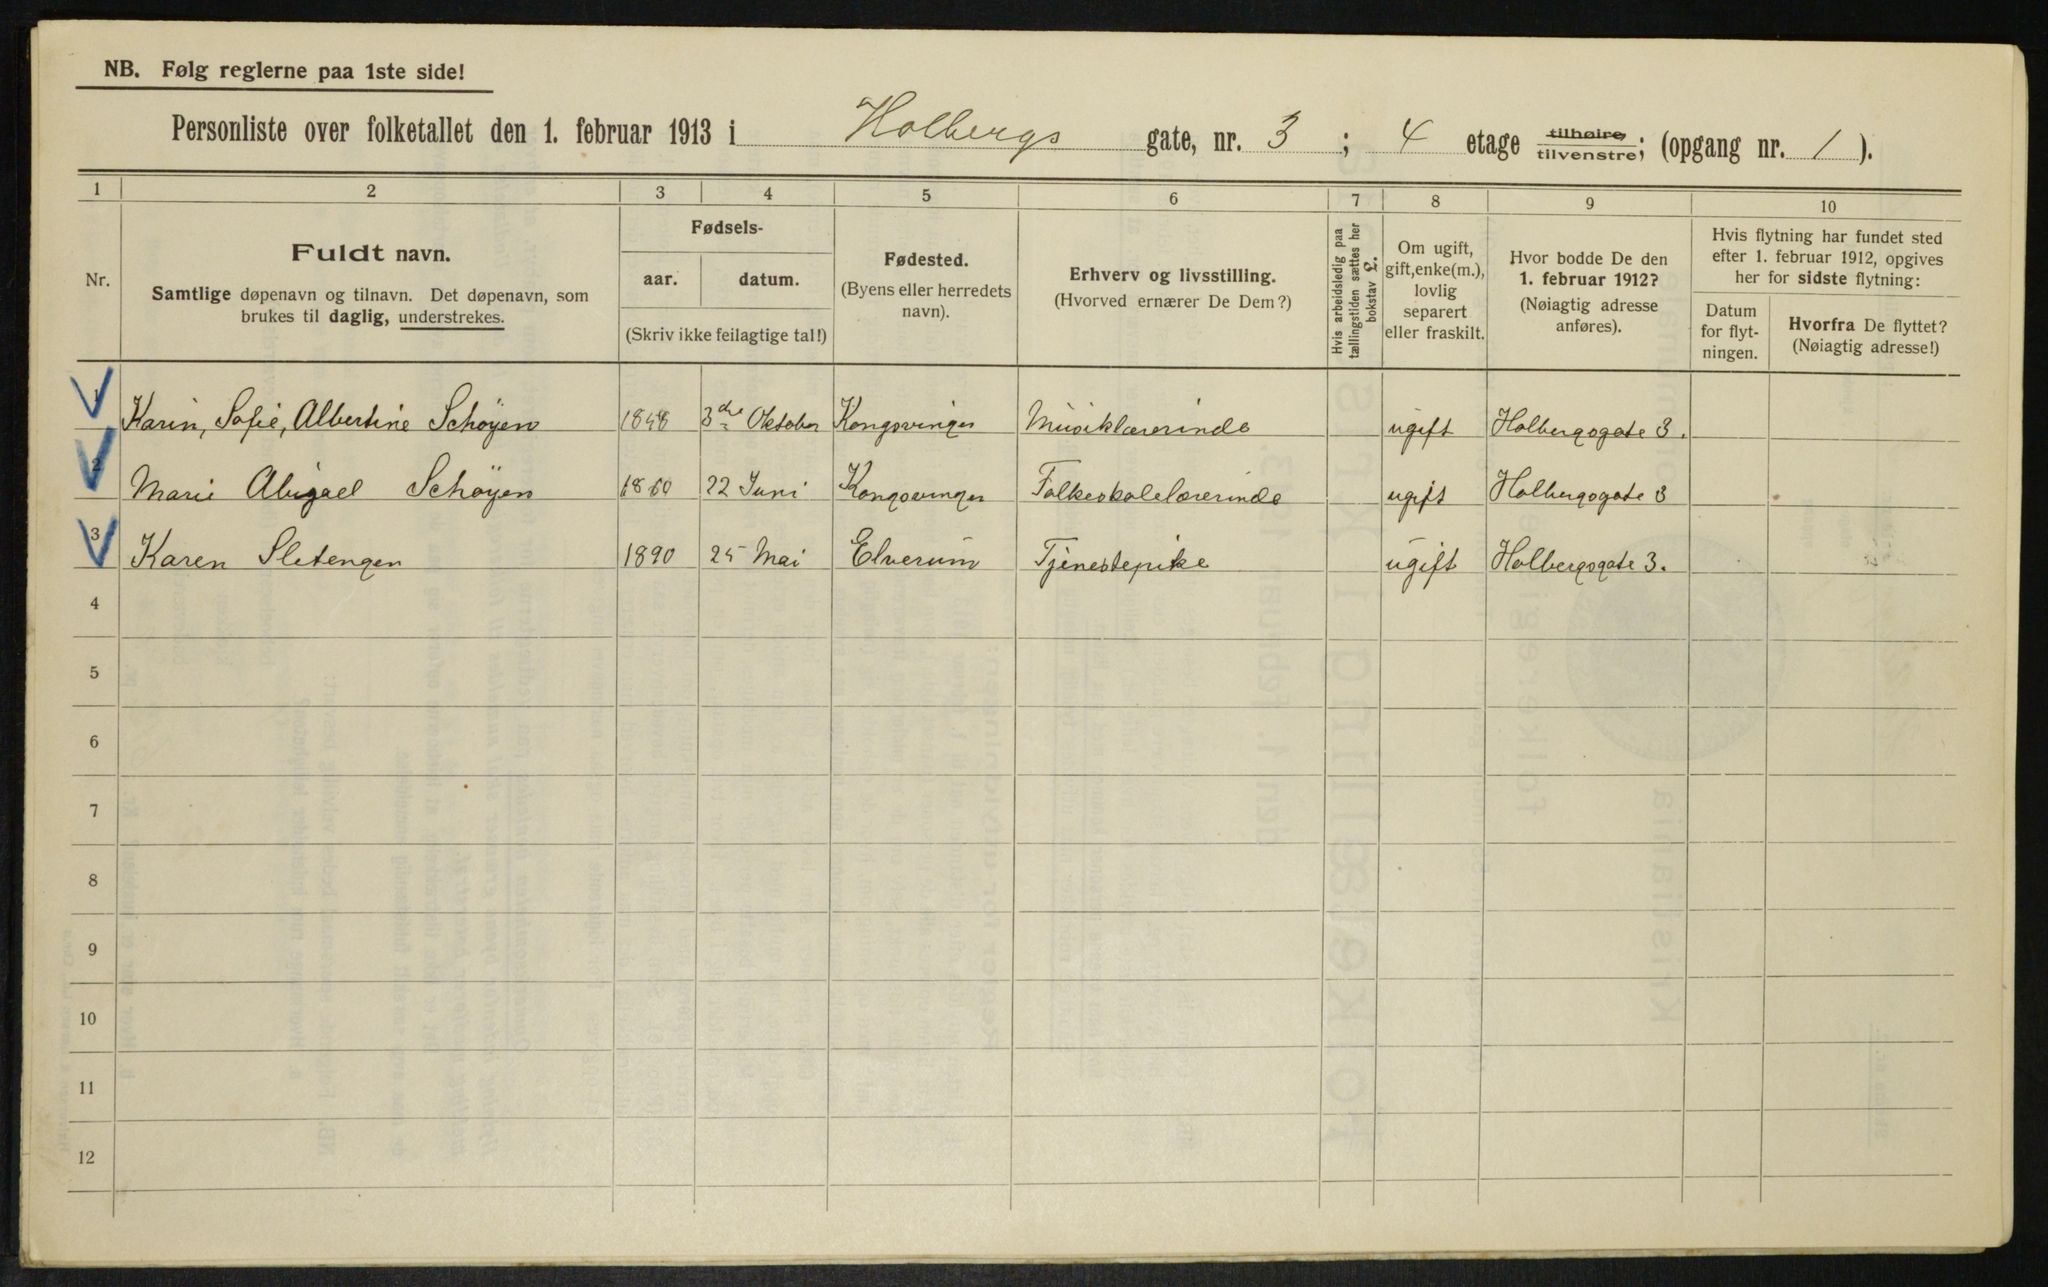 NB. Følg reglerne paa 1ste side!
Personliste over folketallet den 1. februar 1913 i Holbergs gate, nr. 3 ; 4 etage tilhøire, tilvenstre; (opgang nr. 1 ).
1 2 3 4 5 6 7 8 9 10
Nr.
Fuldt navn.
Samtlige døpenavn og tilnavn. Det døpenavn, som
brukes til daglig, understrekes.
Fødsels-
aar. datum.
(Skriv ikke feilagtige tal!)
Fødested.
(Byens eller herredets
navn).
Erhverv og livsstilling.
(Hvorved ernærer De Dem?)
Hvis arbeidsledig paa
tællingstiden sættes her
bokstav L.
Om ugift,
gift, enke(m.),
lovlig
separert
eller fraskilt.
Hvor bodde De den
1. februar 1912?
(Nøiagtig adresse
anføres).
Hvis flytning har fundet sted
efter 1. februar 1912, opgives
her for sidste flytning:
Datum
for flyt-
ningen.
Hvorfra De flyttet?
(Nøiagtig adresse!)
1 Karin, Sofie, Albertine Schøyen 1848 3dre Oktober Kongsvinger Musiklærerinde ugift Holbergsgate 3.
2 Marie Abigael Schøyen 1860 22 Juni Kongsvinger Folkeskolelærerinde ugift Holbergsgate 3
3 Karen Sletengen 1890 25 Mai Elverum Tjenestepike ugift Holbergsgate 3.
4
5
6
7
8
9
10
11
12